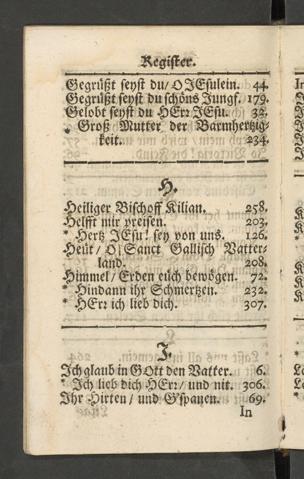 Register.
Gegrüßt seyst du/ O JEsulein. 44.
Gegrüßt seyst du schöns Jungf. 179.
Gelobt seyst du HErr JEsu. 32.
* Groß Mutter der Barmhertzig-
keit. 234.
H.
Heiliger Bischoff Kilian. 258.
Helfft mir preisen. 203.
* Hertz JEsu! sey von uns. 126.
Heut/ O Sanct Gallisch Vatter-
land. 208.
Himmel/ Erden euch bewögen. 72.
* Hindann ihr Schmertzen. 232.
* HErr ich lieb dich. 307.
J.
Ich glaub in GOtt den Vatter. 6.
* Ich lieb dich HErr/ und nit. 306.
Ihr Hirten/ und Gspanen. 69.
In